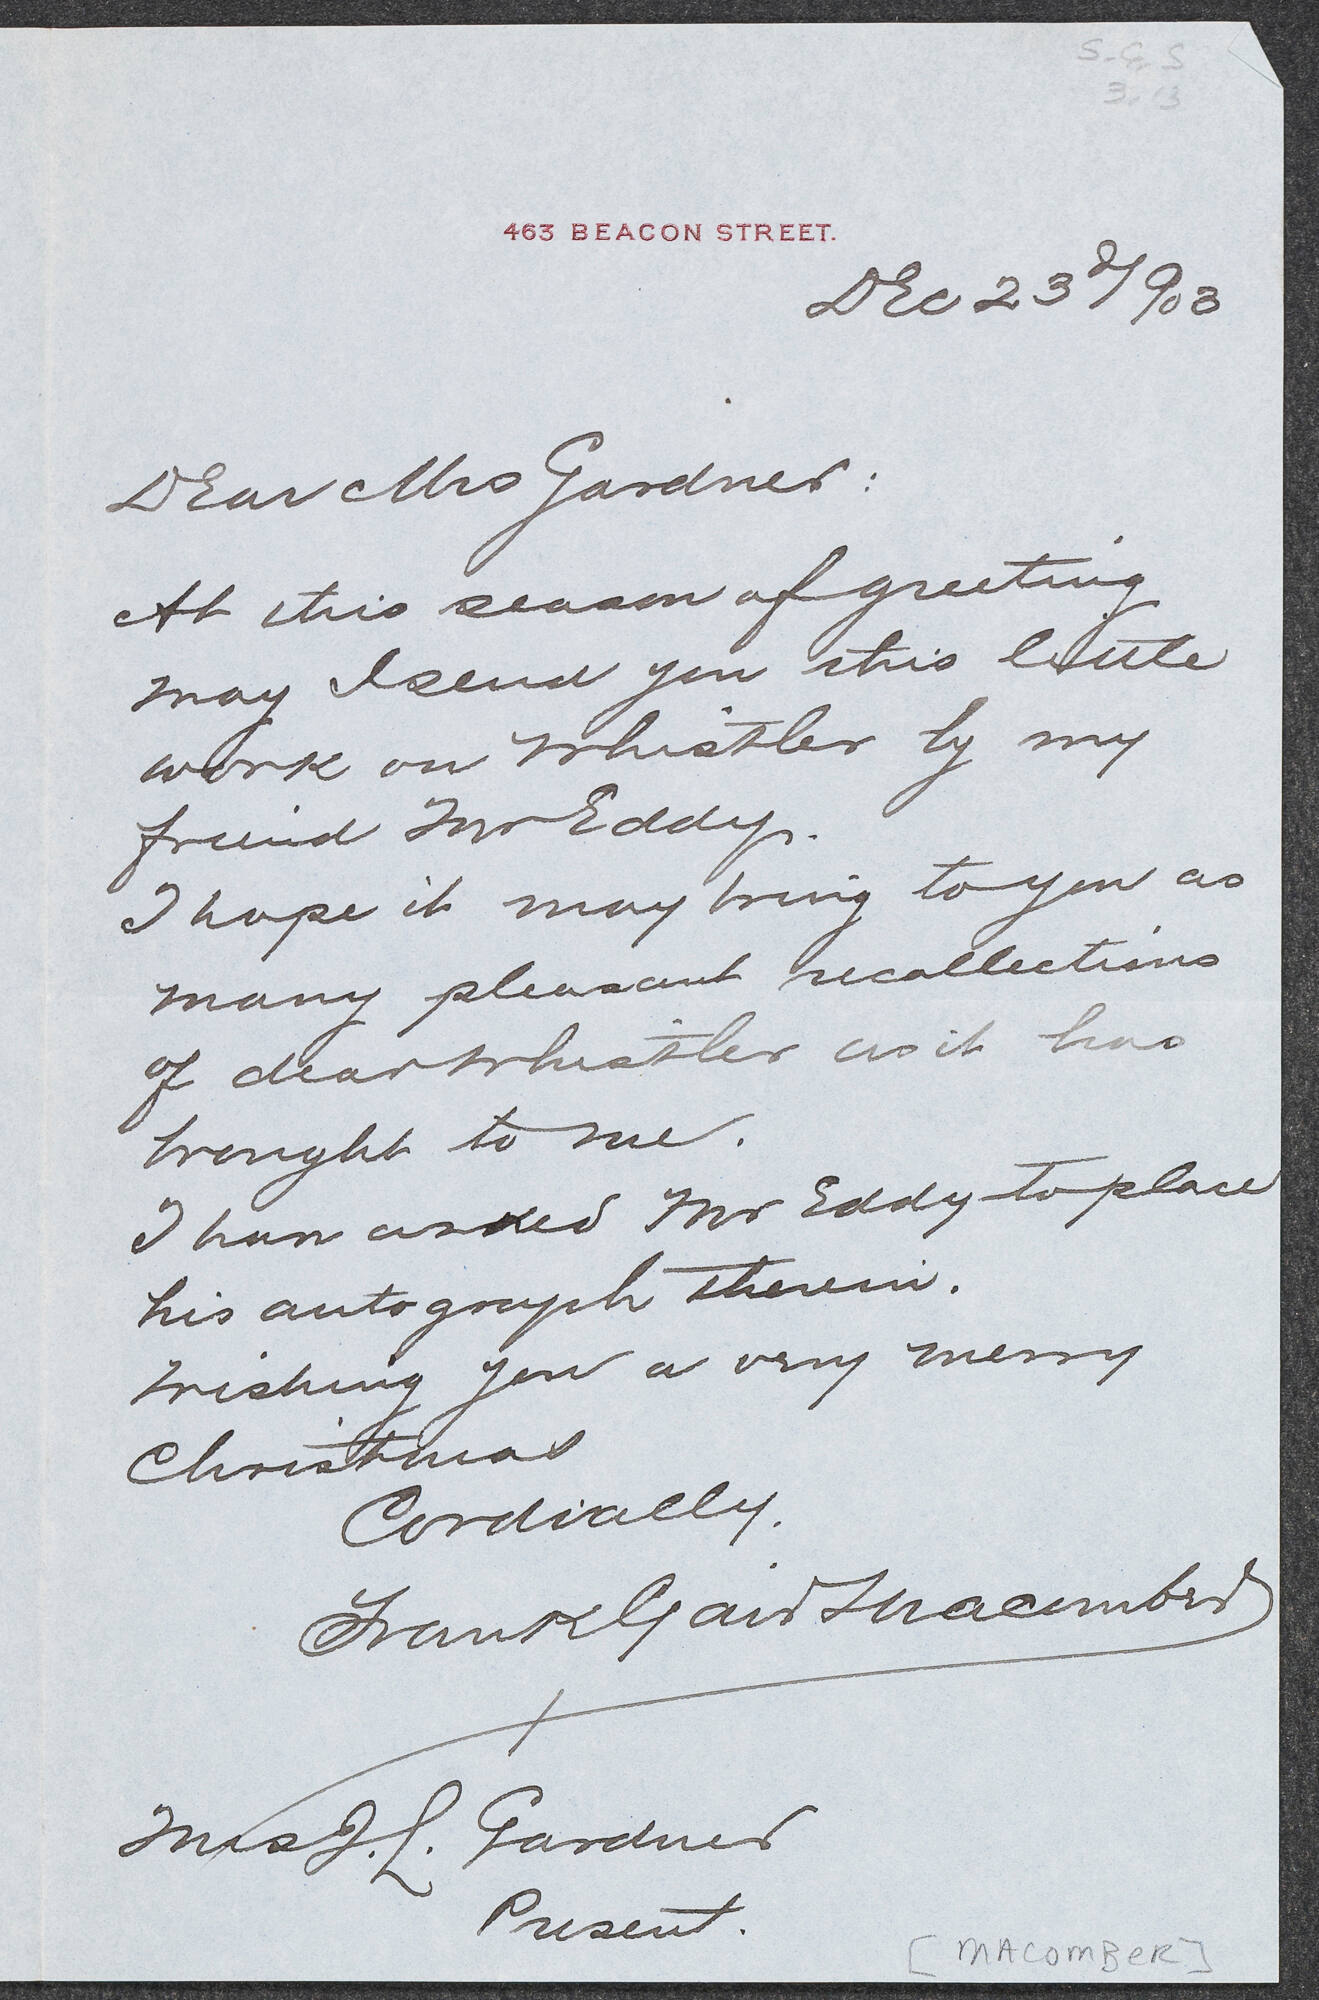 S.G.S
3.13
463 BEACON STREET.
Dec 23d/903
Dear Mrs Gardner:
At this season of greeting
may I send you this little
work on Whistler by my
friend Mr Eddy.
I hope it may bring to you as
many pleasant recollections
of dear Whistler as it has
brought to me.
I have asked Mr Eddy to place
his autograph therein.
Wishing you a very merry
Christmas
Cordially.
Frank Gair Macomber
Mrs J. L. Gardner
Present.
[MACOMBER]